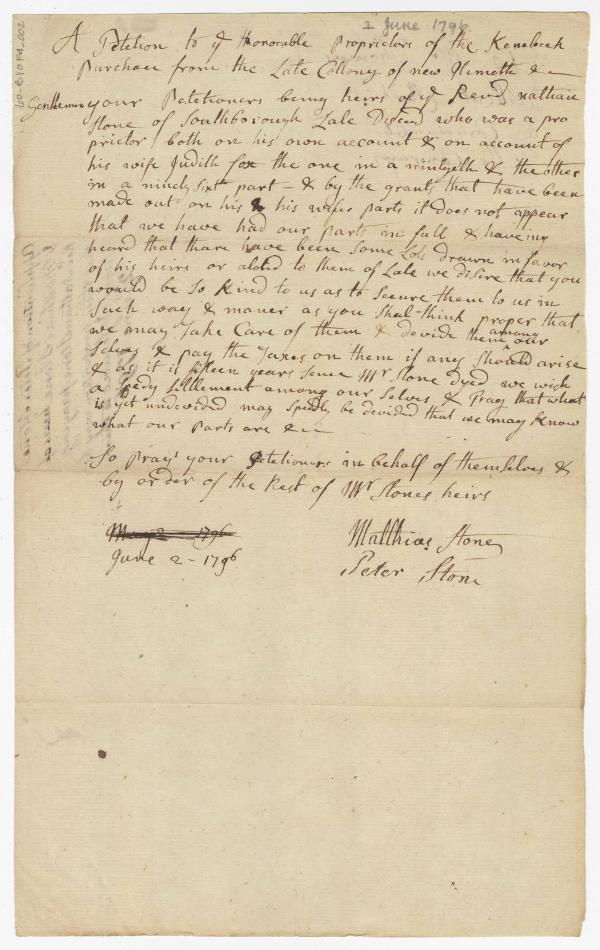 2 June 1796
A Petition to yͤ Honorable Proprietors of the Kenebeck
Purchase from the Late Collony of new Plimoth & c
Gentlemen your Petitioners being heirs of yͤ Revd nathan
Stone of Southborough Late Desesd who was a pro
prietor both on his own account & on account of
his wife Judith fox the one in a mintyeth & the other
in a ninety Sixth part – & by the grants that have been
made out on his & his wifes parts it does not appear
that we have had our parts in full & haveing
heard that thare have been Some Lots drawn in favor
of his heirs or aloted to them of Late we disire that you
would be So Kind to us as to Secure them to us in
Such way & maner as you Shal think proper that
we may Take Care of them & devide them among our
Selves & pay the Taxes on them if any Should arise
& as it is fifteen years Sence Mr Stone Dyed we wish
a Spedy Settlement among our Selves & Pray that what
is yet undevided may Spedily be devided that we may Know
what our parts are & c
So prays your Petitioners in behalf of themselves &
by order of the Rest of Mr Stones heirs
May 2 – 1796
June 2 – 1796
Matthias Stone
Peter Stone